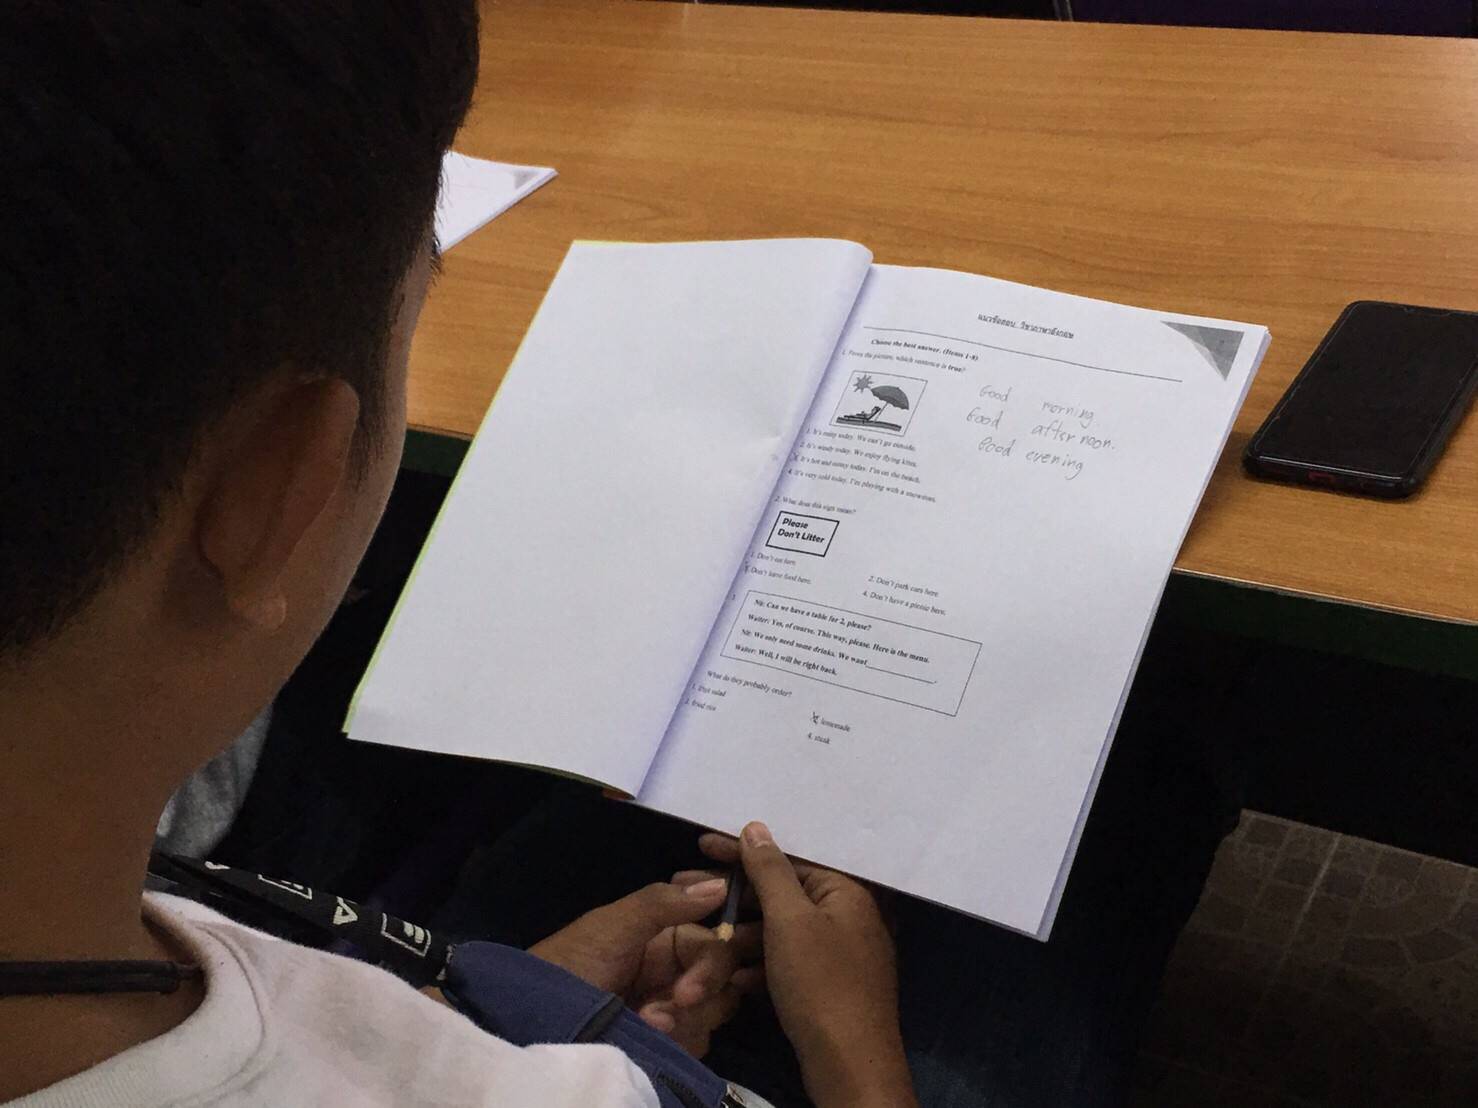 แนวข้อสอบ วิชาภาษาอังกฤษ
Choose the best answer. (Items 1-8)
1. From the picture, which sentence is true?
Good morning.
Good afternoon.
Good evening
1. It's rainy today. We can't go outside.
2. It's windy today. We enjoy flying kites.
3. It's hot and sunny today. I'm on the beach.
4. It's very cold today. I'm playing with a snowman.
2. What does this sign mean?
Please
Don't Litter
1. Don't eat here.
2. Don't park cars here.
Don't leave food here.
4. Don't have a picnic here.
3.
Nit: Can we have a table for 2, please?
Waiter: Yes, of course. This way, please. Here is the menu.
Nit: We only need some drinks. We want
Waiter: Well, I will be right back.
What do they probably order?
1. fruit salad
lemonade
3. fried rice
4. steak